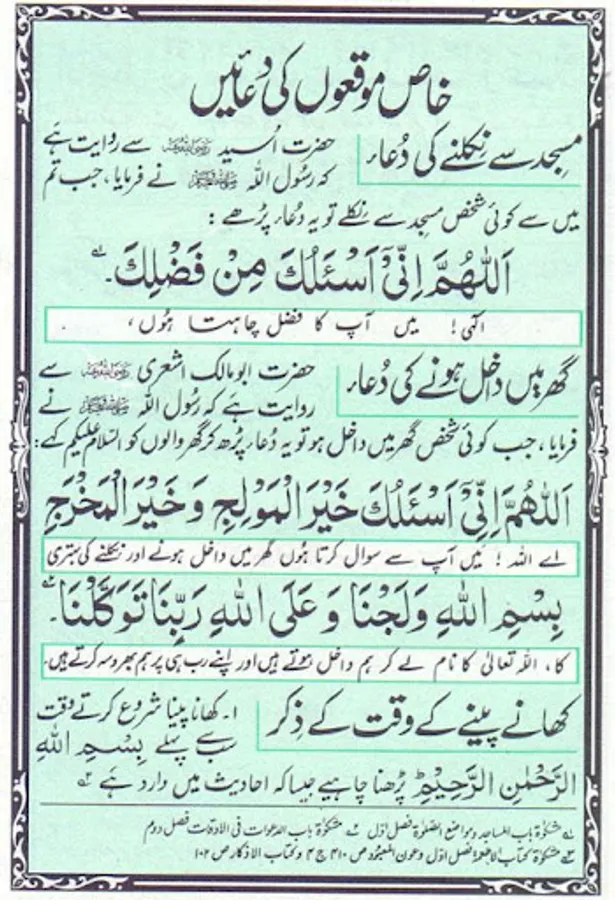 خاص موقعوں کی دعائیں
مسجد سے نکلنے کی دُعاء
حضرت اُسید رضی اللہ عنہ سے روایت ہے
کہ رسُول اللہ ﷺ نے فرمایا، جب تم
میں سے کوئی شخص مسجد سے نکلے تو یہ دُعاء پڑھے :
اَللّٰهُمَّ اِنِّیْٓ اَسْئَلُكَ مِنْ فَضْلِكَ۔ ؎۱
الٰہی ! میں آپ کا فضل چاہتا ہُوں،
گھر میں داخل ہونے کی دُعاء
حضرت ابو مالک اشعری رضی اللہ عنہ سے
روایت ہے کہ رسُول اللہ ﷺ نے
فرمایا، جب کوئی شخص گھر میں داخل ہو تو یہ دُعاء پڑھ کر گھر والوں کو السّلام علیکم کہے:
اَللّٰهُمَّ اِنِّیْٓ اَسْئَلُكَ خَیْرَ الْمَوْلِجِ وَ خَیْرَ الْمَخْرَجِ
اے اللہ ! میں آپ سے سوال کرتا ہُوں گھر میں داخل ہونے اور نکلنے کی بہتری
بِسْمِ اللهِ وَلَجْنَا وَ عَلَی اللهِ رَبِّنَا تَوَكَّلْنَا۔ ؎۲
کا، اللہ تعالیٰ کا نام لے کر ہم داخل ہوتے ہیں اور اپنے رب ہی پر ہم بھروسہ کرتے ہیں۔
کھانے پینے کے وقت کے ذِکر
۱۔ کھانا پینا شروع کرتے وقت
سب سے پہلے بِسْمِ اللهِ
الرَّحْمٰنِ الرَّحِیْمِ پڑھنا چاہیے جیسا کہ احادیث میں وارد ہے ؎۳
؎۱ مشکوٰۃ باب المساجد ومواضع الصلوٰۃ فصل اوّل ؎۲ مشکوٰۃ باب الدعوات فی الاوقات فصل دوم
؎۳ مشکوٰۃ کتاب الاطعمۃ فصل اوّل وعون المعبود ص ۴۱۰ ج ۴ وکتاب الاذکار ص ۱۰۲